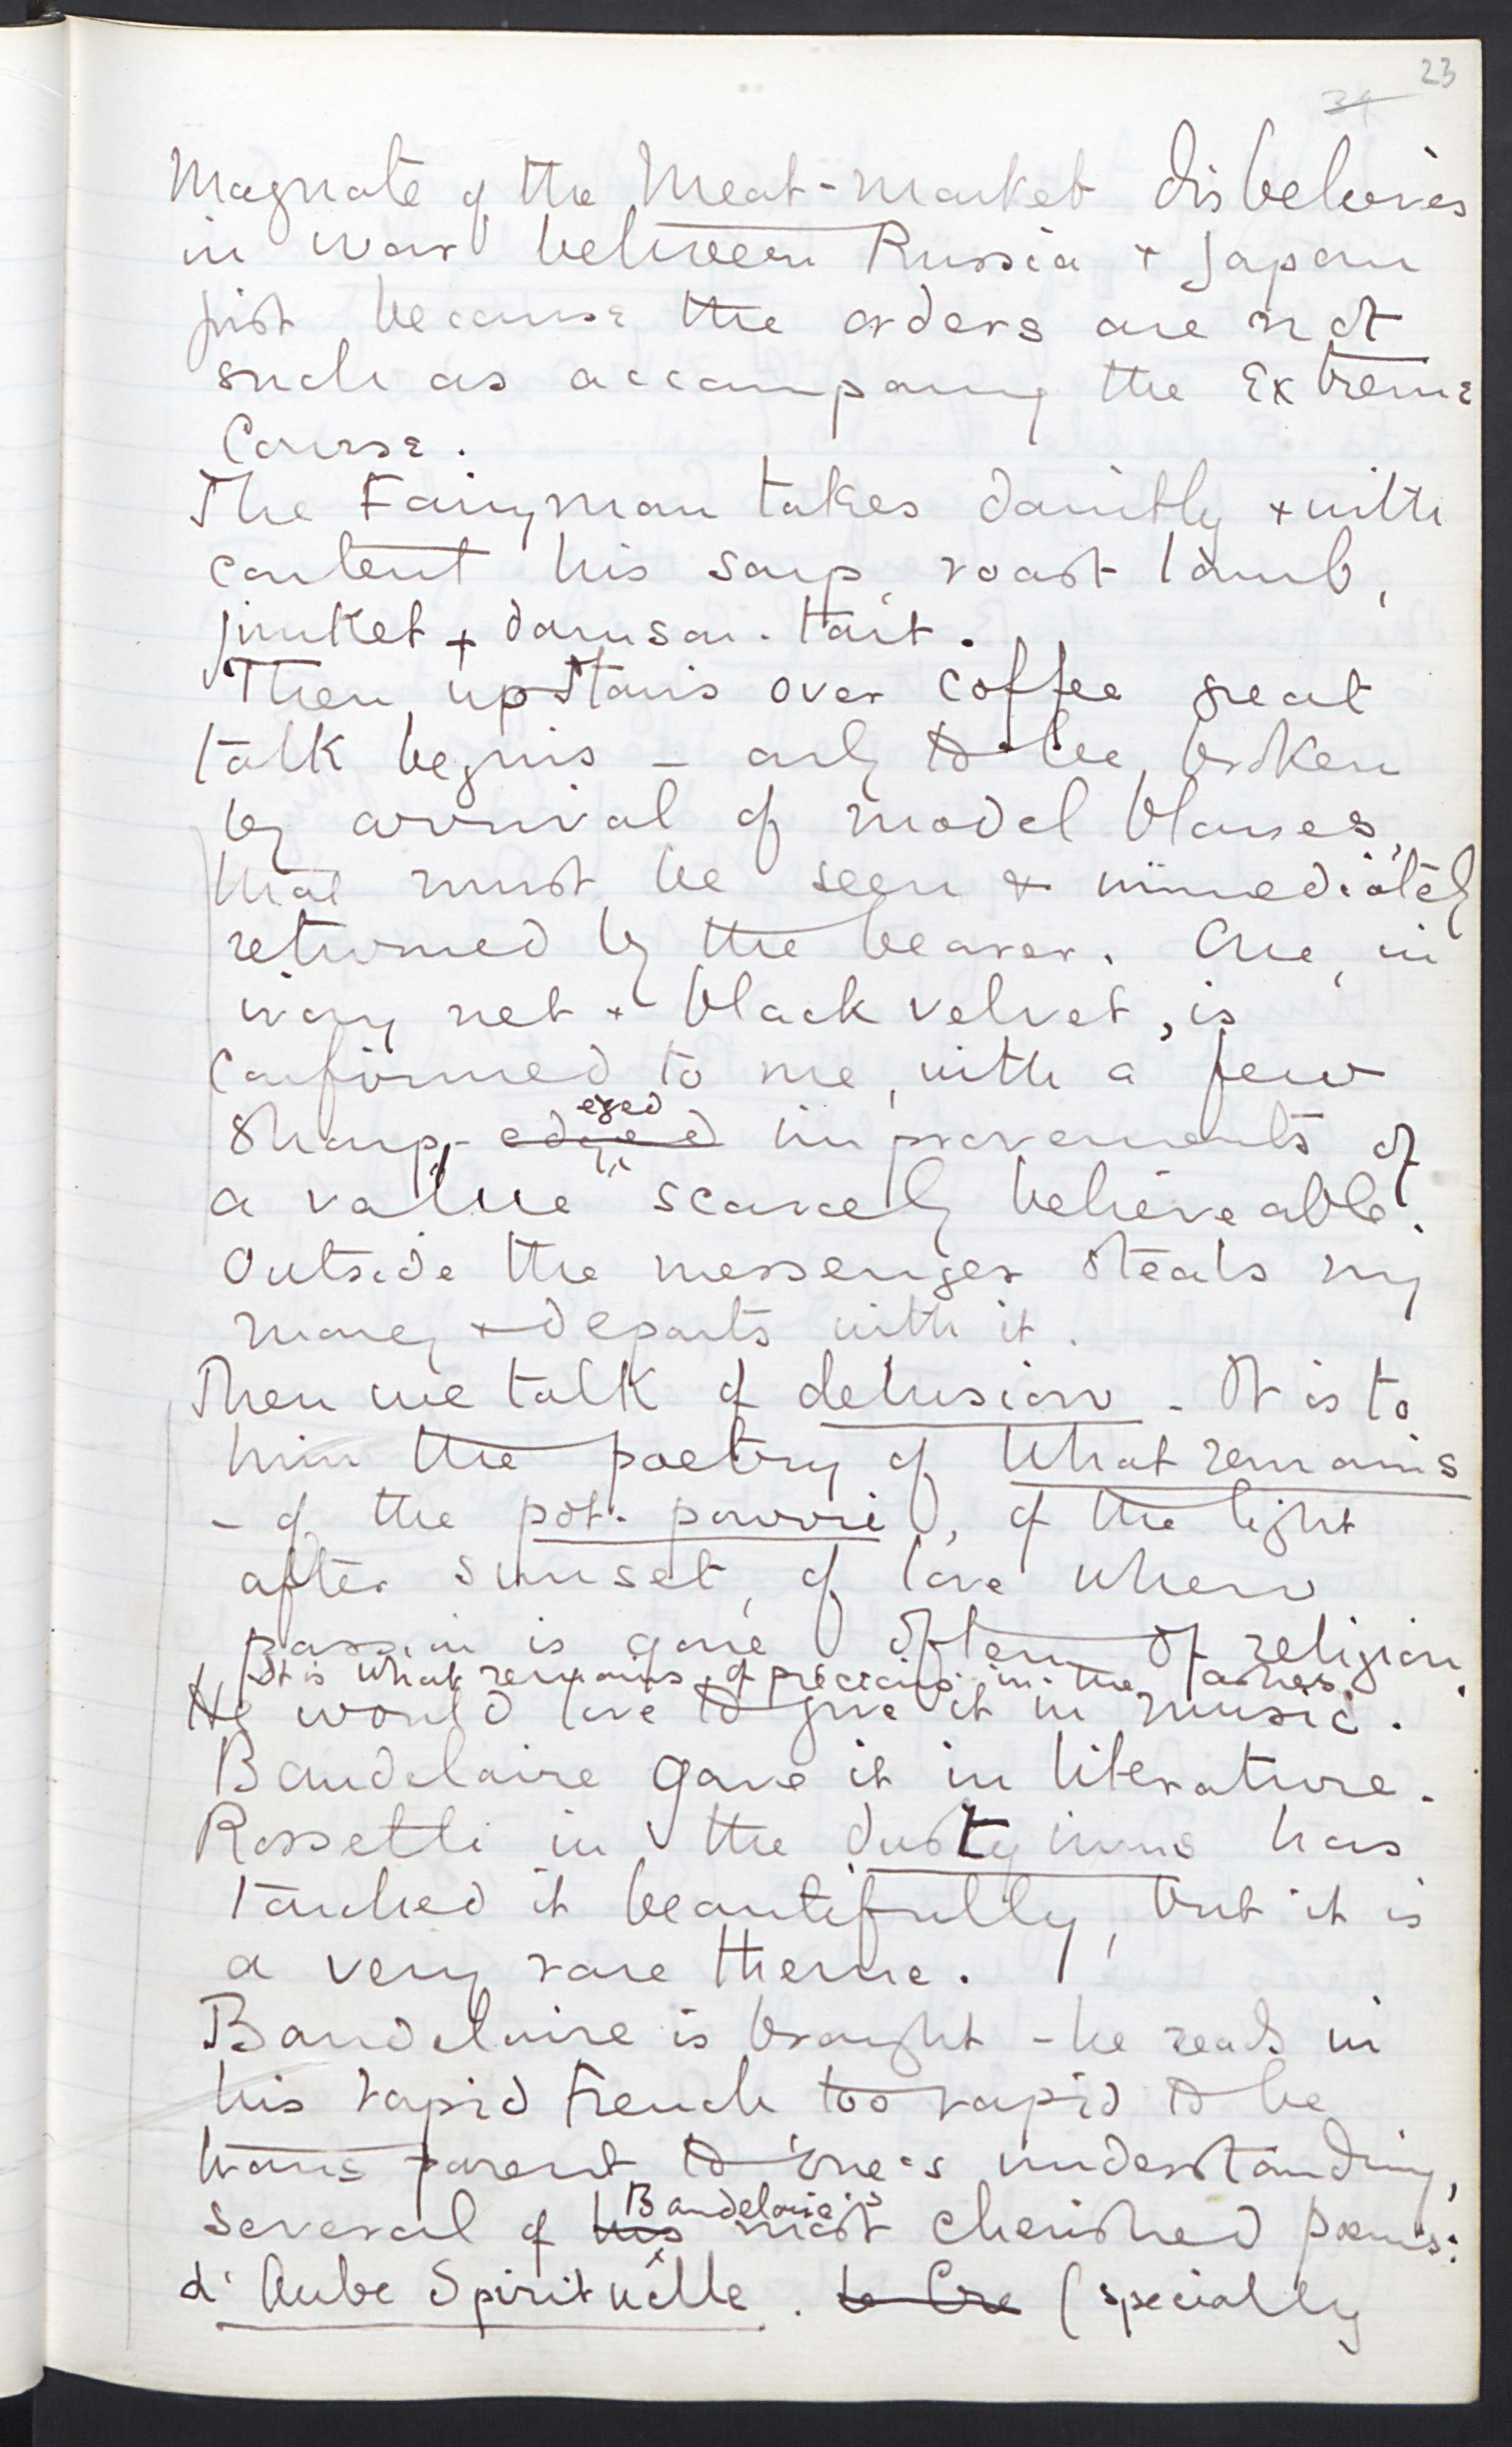 23
34
Magnate of the Meat-market disbeleives
in war between Russia + Japan
just because the orders are not
such as accompany the Extreme
Course.
The Fairyman takes daintly + with
content his soup, roast lamb,
junket + damson-tart.
Then upstairs over coffee great
talk begins – only to be broken
by arrival of model blouses,
that must be seen & immediately
returned by the bearer. One, in
ivory net + black velvet, is
confirmed to me, with a few
eyed
sharp-edged improvements of
a value scarcely believeable.
Outside the messenger steals my
money + departs with it.
Then we talk of delusion – It is to
him the poetry of what remains
– of the pot-pourri, of the light
after sunset, of love when
passion is gone often of religion.
It is what remains of precious in the ashes.
He would love to give it in music.
Baudelaire gave it in literature.
Rossetti in the dusty inns has
touched it beautifully, but it is
a very rare theme.
Baudelaire is brought – he reads in
his rapid French too rapid to be
transparent to one's understanding,
Baudelaire's
several of his most cherished poems:
d' Aube Spirituelle. Le Cre (specially